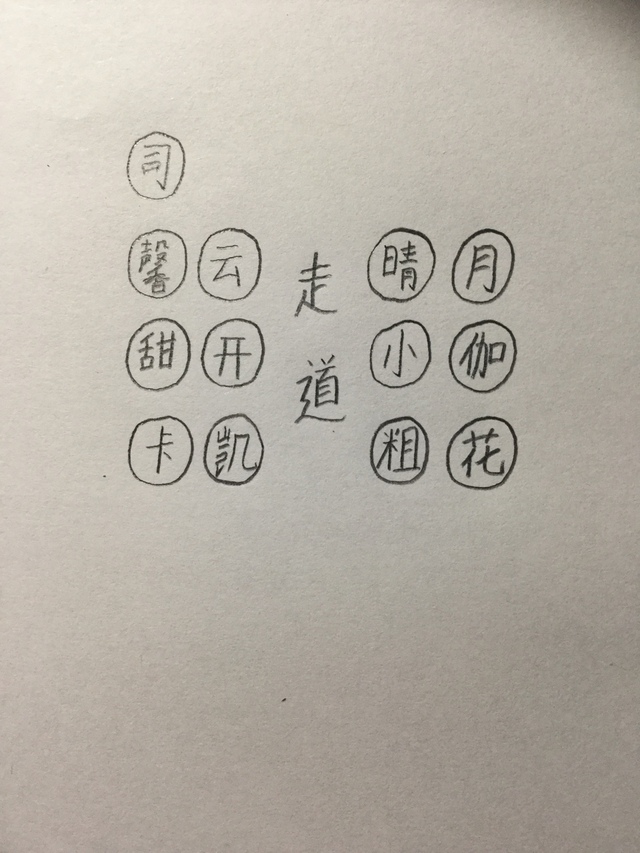 司
馨 云 走 晴 月
甜 开 道 小 伽
卡 凯 粗 花